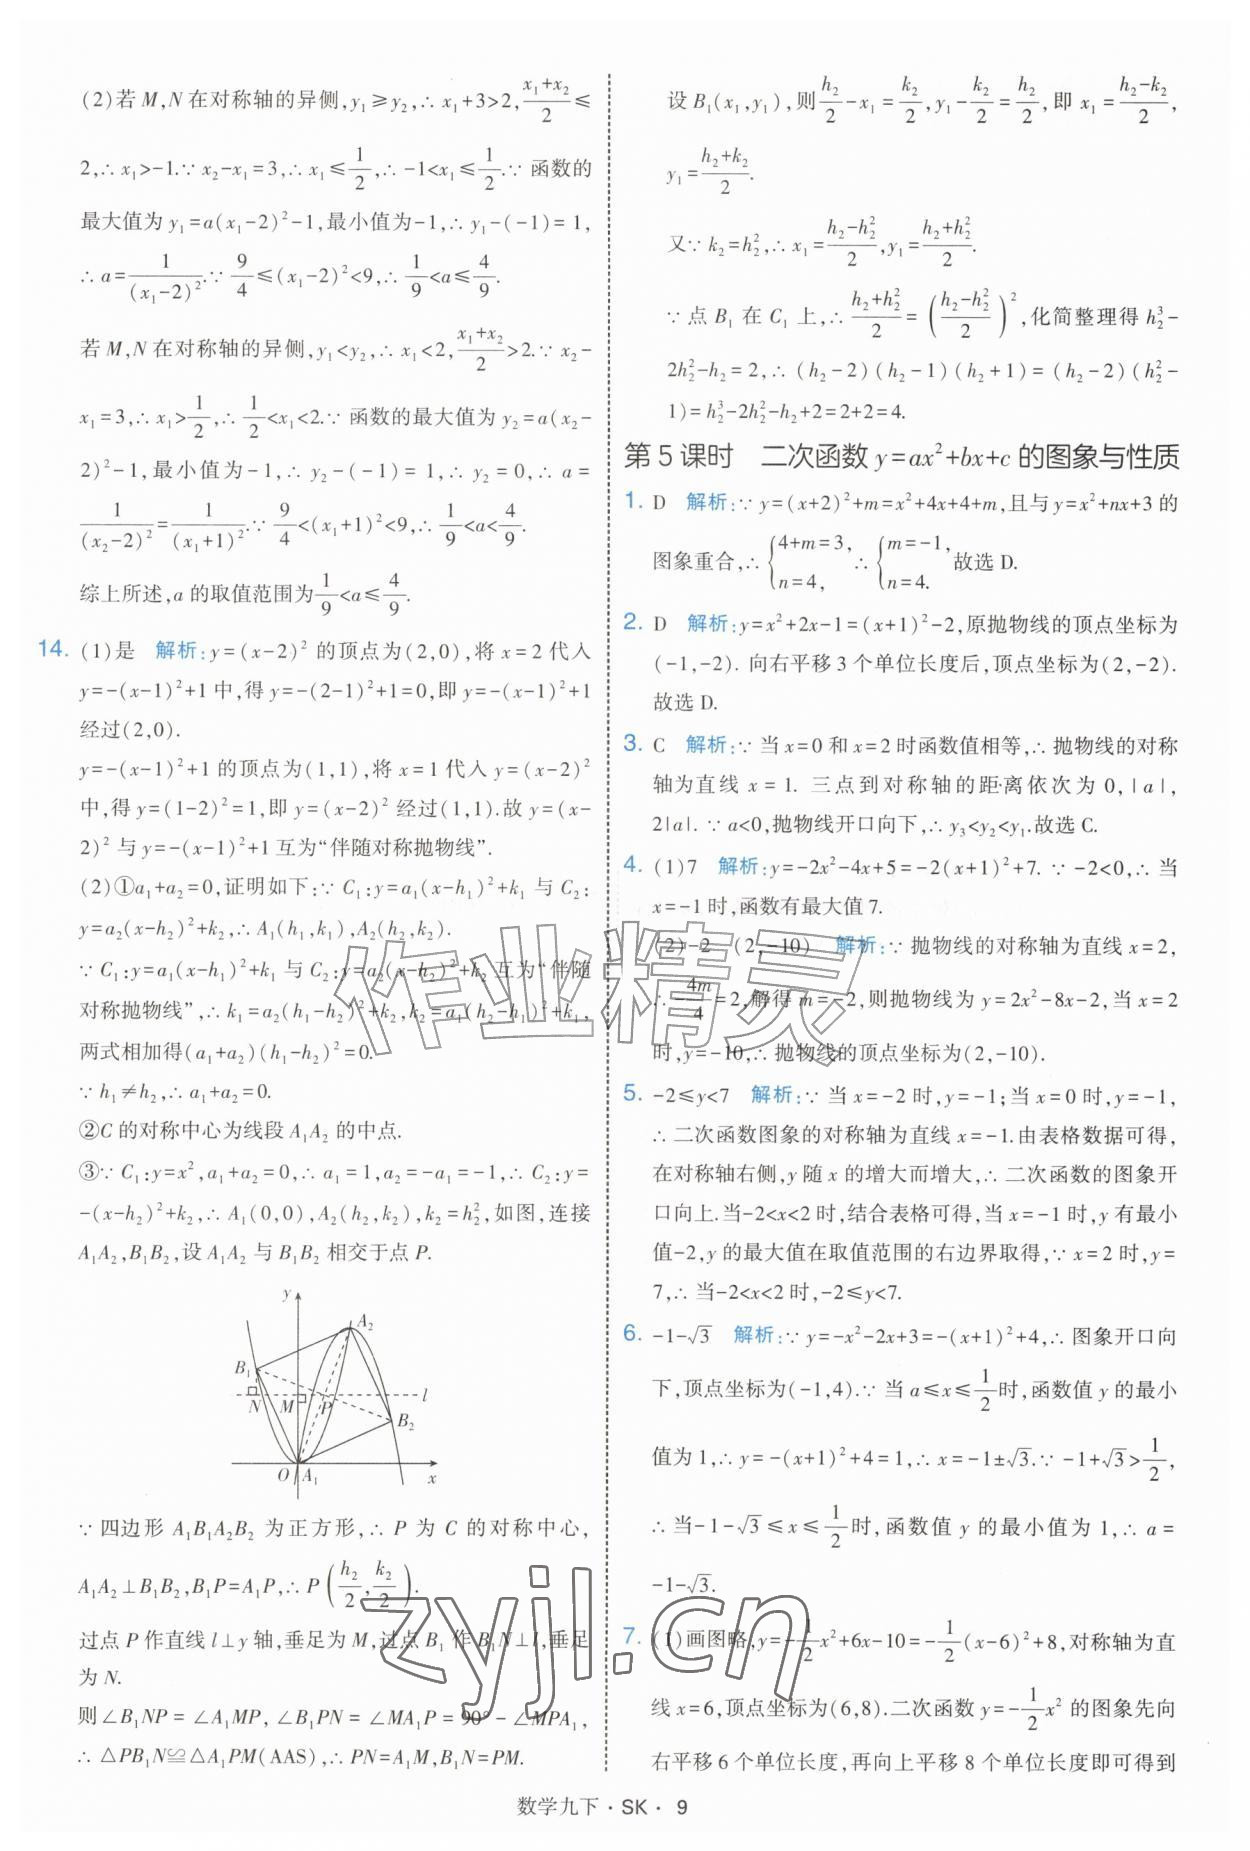 (2)若 M,N 在对称轴的异侧,y₁≥y₂,∴ x₁+3>2,(x₁+x₂)/2≤
2,∴ x₁>-1.∵ x₂-x₁=3,∴ x₁≤1/2,∴ -1<x₁≤1/2.∵ 函数的
最大值为 y₁=a(x₁-2)²-1,最小值为-1,∴ y₁-(-1)=1,
∴ a=1/(x₁-2)².∵ 9/4≤(x₁-2)²<9,∴ 1/9<a≤4/9.
若 M,N 在对称轴的异侧,y₁<y₂,∴ x₁<2,(x₁+x₂)/2>2.∵ x₂-
x₁=3,∴ x₁>1/2,∴ 1/2<x₁<2.∵ 函数的最大值为 y₂=a(x₂-
2)²-1,最小值为-1,∴ y₂-(-1)=1,∴ y₂=0,∴ a=
1/(x₂-2)²=1/(x₁+1)².∵ 9/4<(x₁+1)²<9,∴ 1/9<a<4/9.
综上所述,a 的取值范围为1/9<a≤4/9.
14. (1)是 解析:y=(x-2)² 的顶点为(2,0),将 x=2 代入
y=-(x-1)²+1 中,得 y=-(2-1)²+1=0,即 y=-(x-1)²+1
经过(2,0).
y=-(x-1)²+1 的顶点为(1,1),将 x=1 代入 y=(x-2)²
中,得 y=(1-2)²=1,即 y=(x-2)² 经过(1,1).故 y=(x-
2)² 与 y=-(x-1)²+1 互为“伴随对称抛物线”.
(2)①a₁+a₂=0,证明如下:∵ C₁:y=a₁(x-h₁)²+k₁ 与 C₂:
y=a₂(x-h₂)²+k₂,∴ A₁(h₁,k₁),A₂(h₂,k₂).
∵ C₁:y=a₁(x-h₁)²+k₁ 与 C₂:y=a₂(x-h₂)²+k₂ 互为“伴随
对称抛物线”,∴ k₁=a₂(h₁-h₂)²+k₂,k₂=a₁(h₂-h₁)²+k₁,
两式相加得(a₁+a₂)(h₁-h₂)²=0.
∵ h₁≠h₂,∴ a₁+a₂=0.
②C 的对称中心为线段 A₁A₂ 的中点.
③∵ C₁:y=x²,a₁+a₂=0,∴ a₁=1,a₂=-a₁=-1,∴ C₂:y=
-(x-h₂)²+k₂,∴ A₁(0,0),A₂(h₂,k₂),k₂=h₂²,如图,连接
A₁A₂,B₁B₂,设 A₁A₂ 与 B₁B₂ 相交于点 P.
y
A₂
B₁
N M P l
B₂
O A₁ x
∵ 四边形 A₁B₁A₂B₂ 为正方形,∴ P 为 C 的对称中心,
A₁A₂⊥B₁B₂,B₁P=A₁P,∴ P(h₂/2,k₂/2).
过点 P 作直线 l⊥y 轴,垂足为 M,过点 B₁ 作 B₁N⊥l,垂足
为 N.
则∠B₁NP=∠A₁MP,∠B₁PN=∠MA₁P=90°-∠MPA₁,
∴ △PB₁N≌△A₁PM(AAS),∴ PN=A₁M,B₁N=PM.
设 B₁(x₁,y₁),则h₂/2-x₁=k₂/2,y₁-k₂/2=h₂/2,即 x₁=(h₂-k₂)/2,
y₁=(h₂+k₂)/2.
又∵ k₂=h₂²,∴ x₁=(h₂-h₂²)/2,y₁=(h₂+h₂²)/2.
∵ 点 B₁ 在 C₁ 上,∴ (h₂+h₂²)/2=((h₂-h₂²)/2)²,化简整理得 h₂³-
2h₂²-h₂=2,∴ (h₂-2)(h₂-1)(h₂+1)=(h₂-2)(h₂²-
1)=h₂³-2h₂²-h₂+2=2+2=4.
第 5 课时 二次函数 y=ax²+bx+c 的图象与性质
1. D 解析:∵ y=(x+2)²+m=x²+4x+4+m,且与 y=x²+nx+3 的
图象重合,∴ {4+m=3, n=4, ∴ {m=-1, n=4. 故选 D.
2. D 解析:y=x²+2x-1=(x+1)²-2,原抛物线的顶点坐标为
(-1,-2). 向右平移 3 个单位长度后,顶点坐标为(2,-2).
故选 D.
3. C 解析:∵ 当 x=0 和 x=2 时函数值相等,∴ 抛物线的对称
轴为直线 x=1. 三点到对称轴的距离依次为 0,|a|,
2|a|. ∵ a<0,抛物线开口向下,∴ y₃<y₂<y₁.故选 C.
4. (1)7 解析:y=-2x²-4x+5=-2(x+1)²+7. ∵ -2<0,∴ 当
x=-1 时,函数有最大值 7.
(2)-2 (2,-10) 解析:∵ 抛物线的对称轴为直线 x=2,
∴ -4m/4=2,解得 m=-2,则抛物线为 y=2x²-8x-2,当 x=2
时,y=-10,∴ 抛物线的顶点坐标为(2,-10).
5. -2≤y<7 解析:∵ 当 x=-2 时,y=-1;当 x=0 时,y=-1,
∴ 二次函数图象的对称轴为直线 x=-1.由表格数据可得,
在对称轴右侧,y 随 x 的增大而增大,∴ 二次函数的图象开
口向上.当-2<x<2 时,结合表格可得,当 x=-1 时,y 有最小
值-2,y 的最大值在取值范围的右边界取得,∵ x=2 时,y=
7,∴ 当-2<x<2 时,-2≤y<7.
6. -1-√3 解析:∵ y=-x²-2x+3=-(x+1)²+4,∴ 图象开口向
下,顶点坐标为(-1,4).∵ 当 a≤x≤1/2时,函数值 y 的最小
值为 1,∴ y=-(x+1)²+4=1,∴ x=-1±√3.∵ -1+√3>1/2,
∴ 当-1-√3≤x≤1/2时,函数值 y 的最小值为 1,∴ a=
-1-√3.
7. (1)画图略,y=-1/2x²+6x-10=-1/2(x-6)²+8,对称轴为直
线 x=6,顶点坐标为(6,8).二次函数 y=-1/2x² 的图象先向
右平移 6 个单位长度,再向上平移 8 个单位长度即可得到
作业精灵
zyjl.cn
数学九下·SK·9